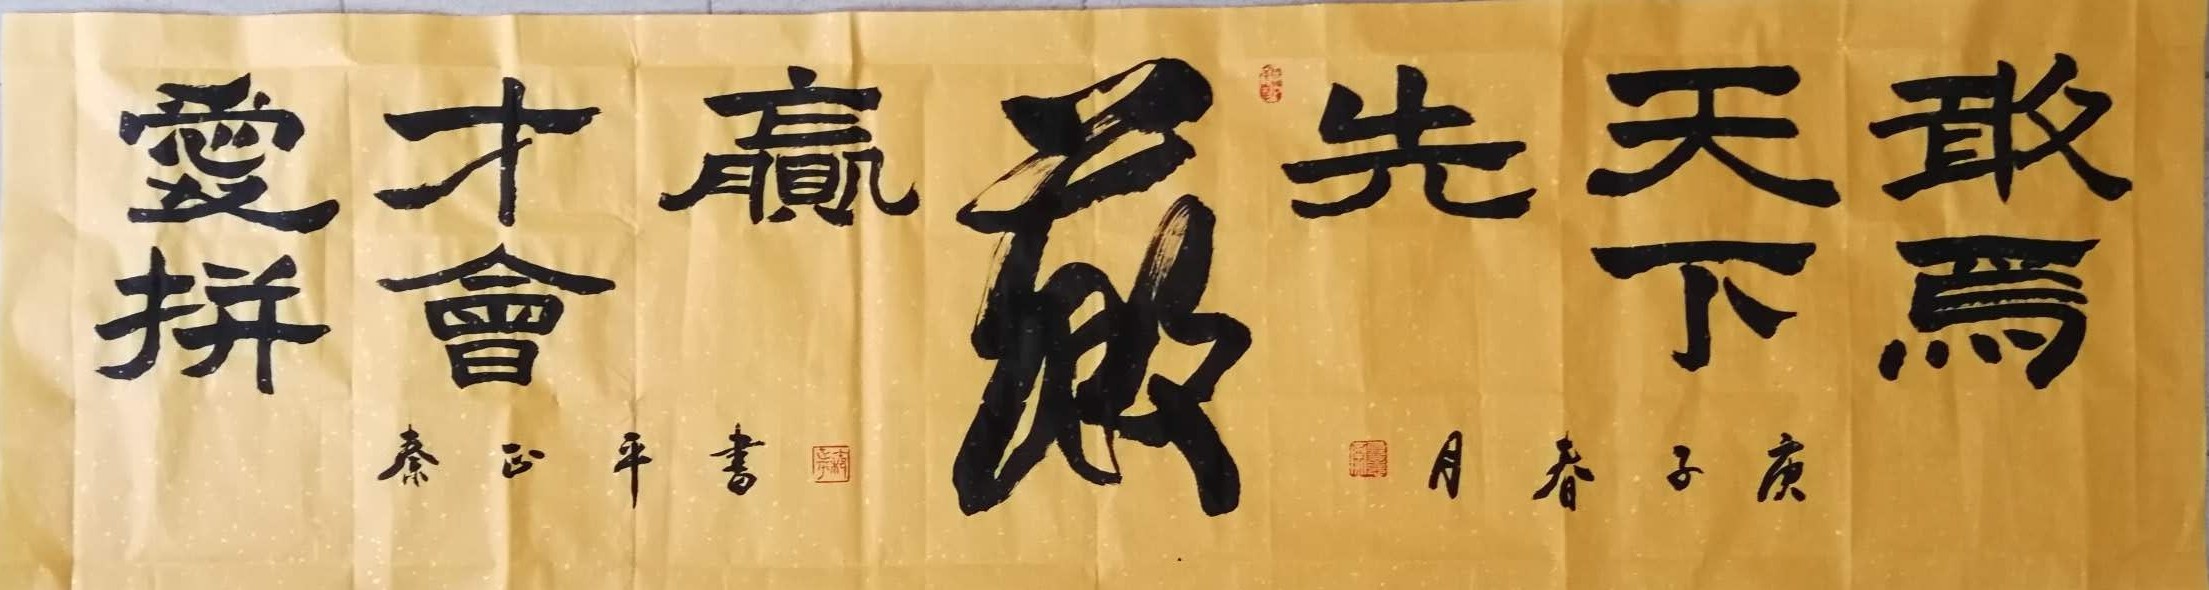 敢為
天下
先
愛拼
才會
贏
庚子春月
秦正平書